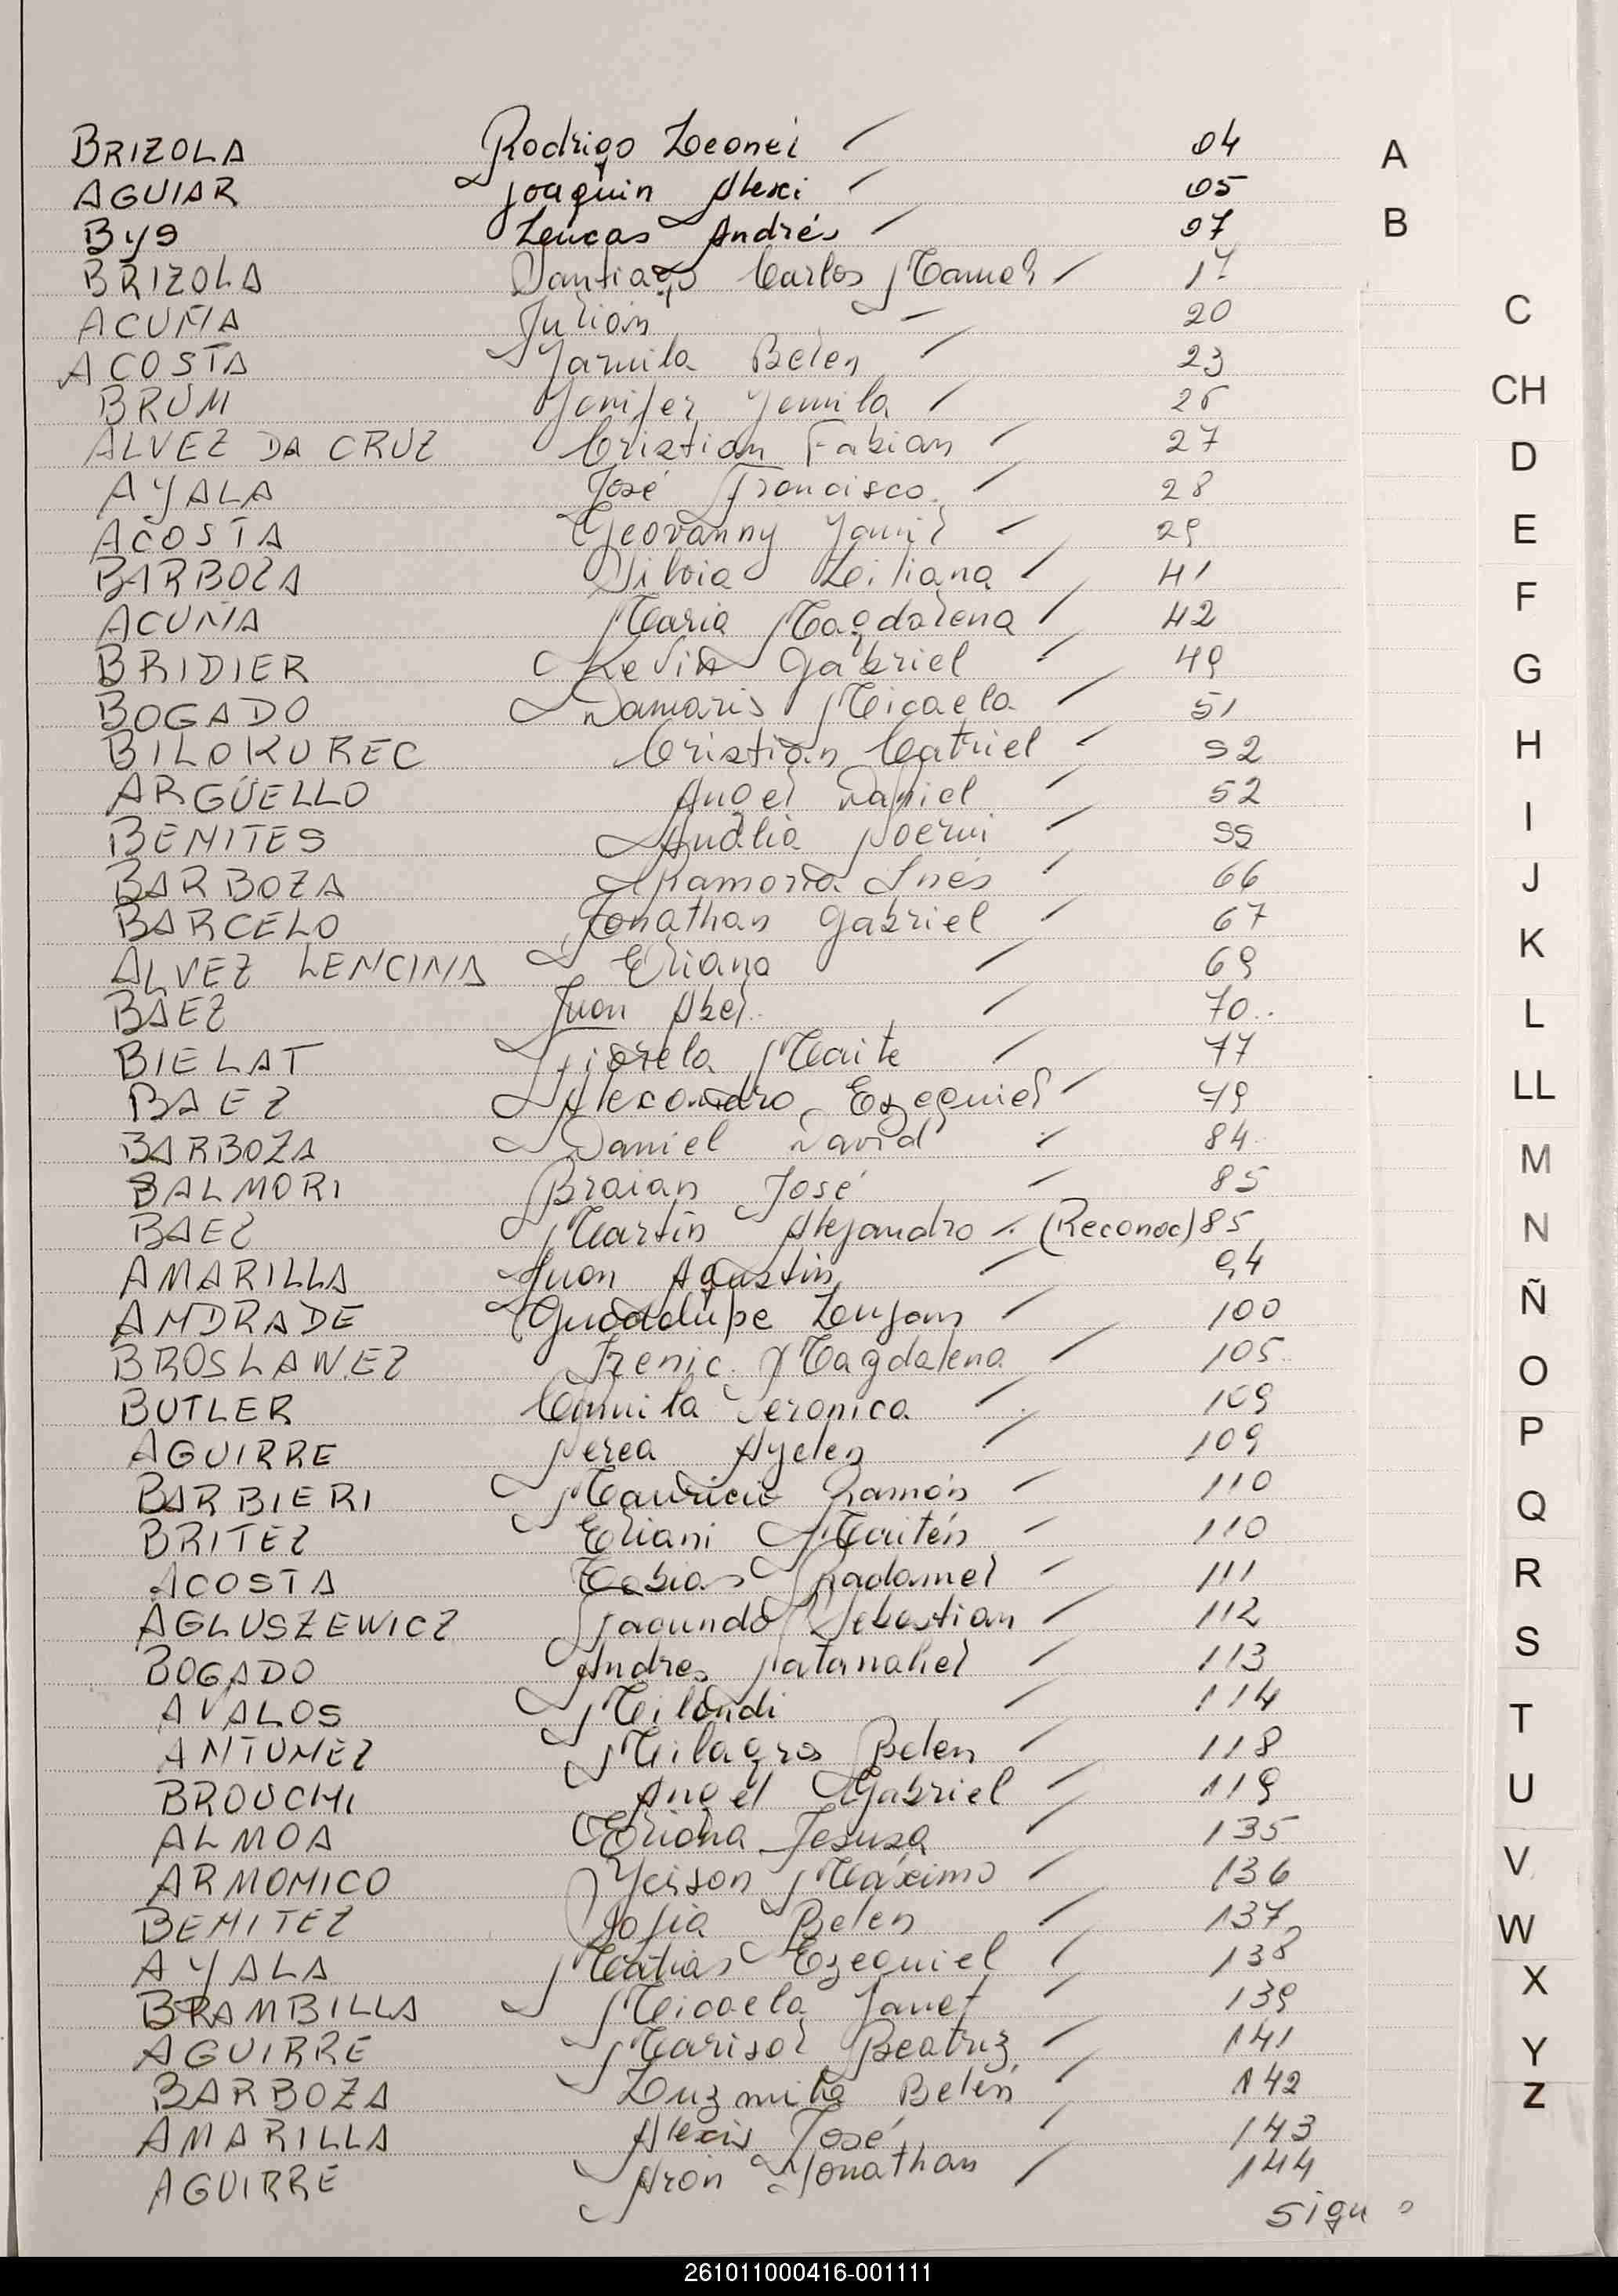 BRIZOLA Rodrigo Leonel 04
AGUIAR Joaquin Alexi 05
Bys Lucas Andrés 07
BRIZOLA Santiago Carlos Manuel 17
ACUÑA Julián 20
ACOSTA Yamila Belen 23
BRUM Yenifer Yamila 26
ALVEZ DA CRUZ Cristian Fabian 27
AYALA José Francisco 28
ACOSTA Geovanny Yamil 29
BARBOZA Silvia Liliana 41
ACUÑA Maria Magdalena 42
BRIDIER Kevin Gabriel 49
BOGADO Damaris Micaela 51
BILOKUREC Cristian Catriel 52
ARGÜELLO Angel Daniel 52
BENITES Analia Noemi 55
BARBOZA Ramona Inés 66
BARCELO Jonathan Gabriel 67
ALVEZ LENCINA Eliana 69
BAEZ Juan Abel 70
BIELAT Fiorela Maite 77
BAEZ Alexandro Ezequiel 79
BARBOZA Daniel David 84
BALMORI Braian José 85
BAEZ Martín Alejandro (Reconoc) 85
AMARILLA Juan Agustin 94
ANDRADE Guadalupe Lujan 100
BROSLAWEZ Irenic Magdalena 105
BUTLER Camila Veronica 109
AGUIRRE Nerea Ayelen 109
BARBIERI Mauricio Ramón 110
BRITEZ Eliani Maitén 110
ACOSTA Tobias Radamel 111
AGLUSZEWICZ Facundo Sebastian 112
BOGADO Andres Natanahel 113
AVALOS Milondi 114
ANTUNEZ Milagros Belen 118
BROUCHI Angel Gabriel 119
ALMOA Eliana Jesusa 135
ARMONICO Yeison Máximo 136
BENITEZ Sofia Belen 137
AYALA Matias Ezequiel 138
BRAMBILLA Micaela Janet 139
AGUIRRE Marisol Beatriz 141
BARBOZA Luzmila Belén 142
AMARILLA Alexis José 143
AGUIRRE Aron Jonathan 144
sigue
A
B
C
CH
D
E
F
G
H
I
J
K
L
LL
M
N
Ñ
O
P
Q
R
S
T
U
V
W
X
Y
Z
261011000416-001111